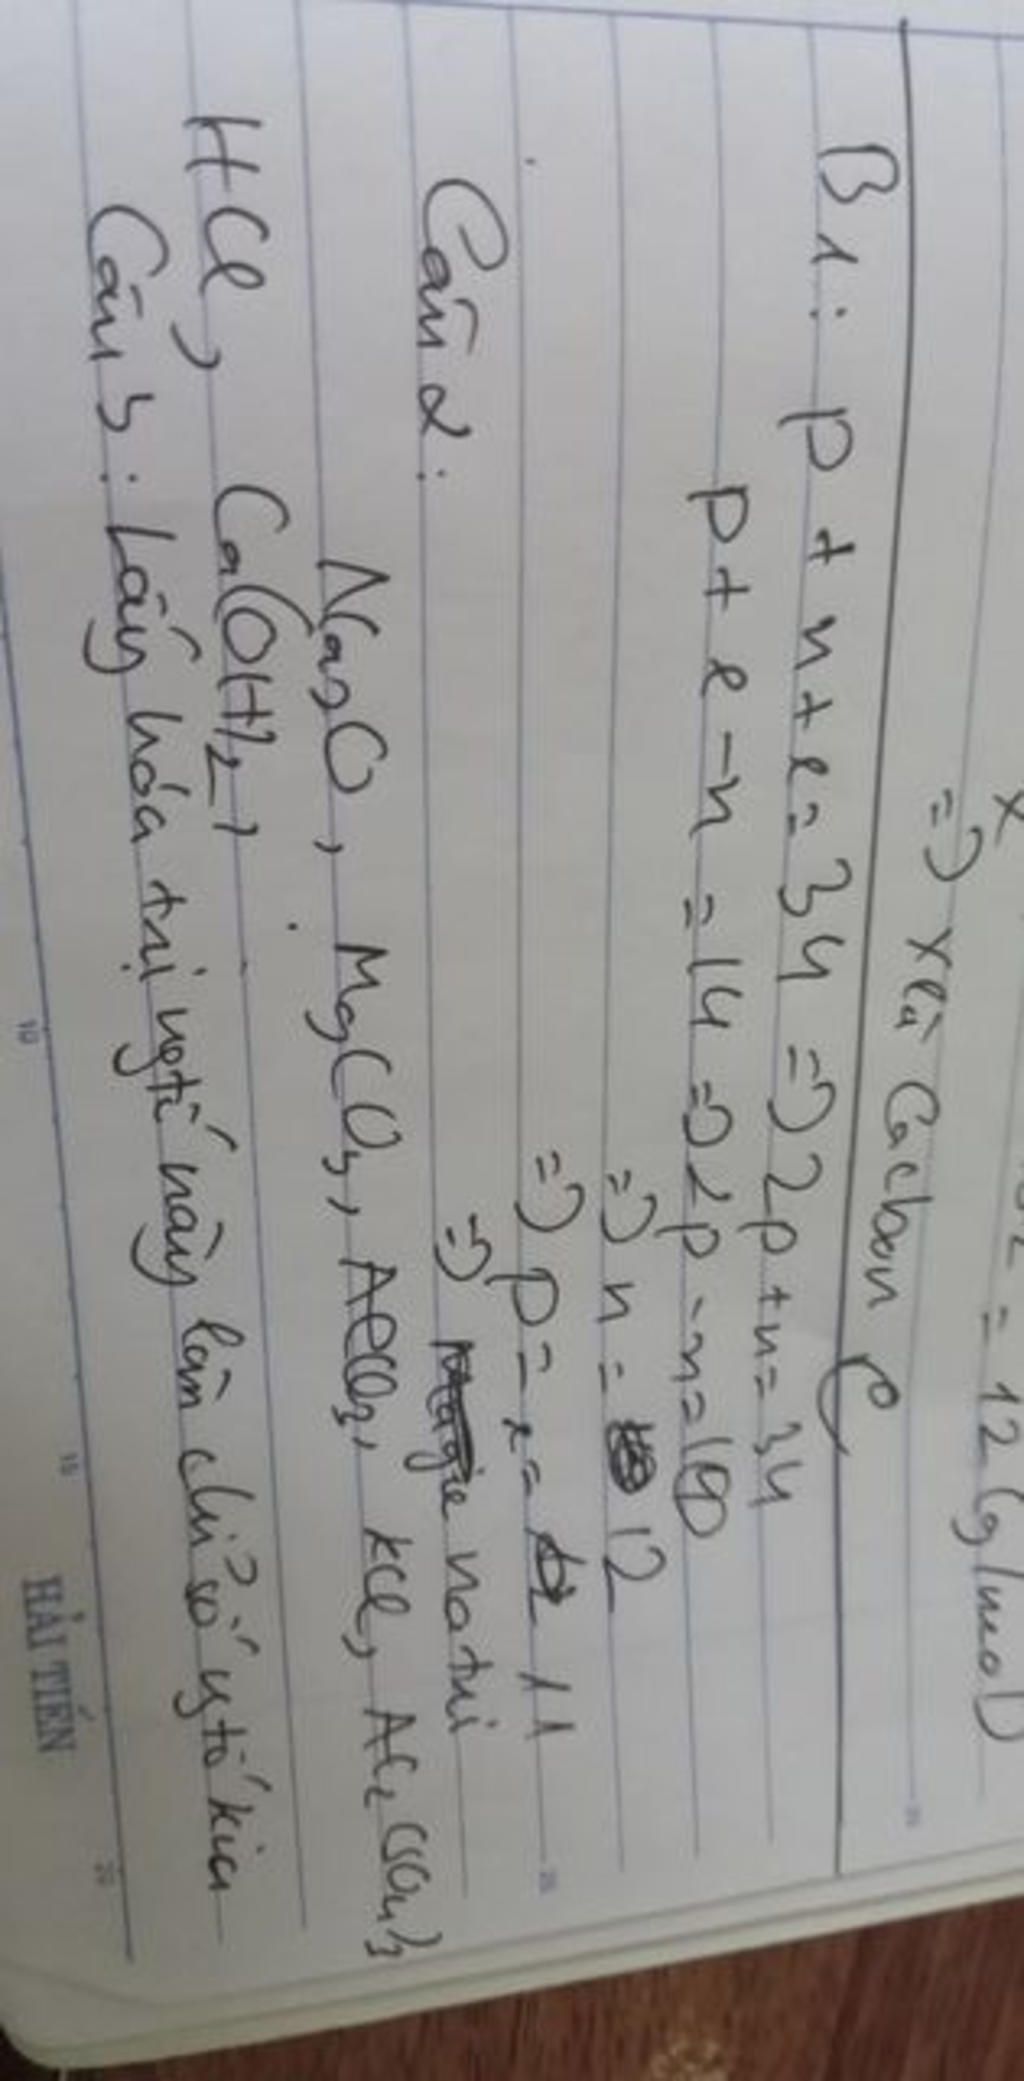 = 12 (g/mol)
=> X là Cacbon C
B1: p + n + e = 34 => 2p + n = 34
p + e - n = 14 => 2p - n = 10
=> n = 12
=> p = e = 11
=> natri
Câu 2:
Na2O, MgCO3, AlCl3, KCl, Al2(SO4)3
HCl, Ca(OH)2,
Câu 3: Lấy hóa trị ngtố này làm chỉ số ngtố kia
HẢI TIẾN